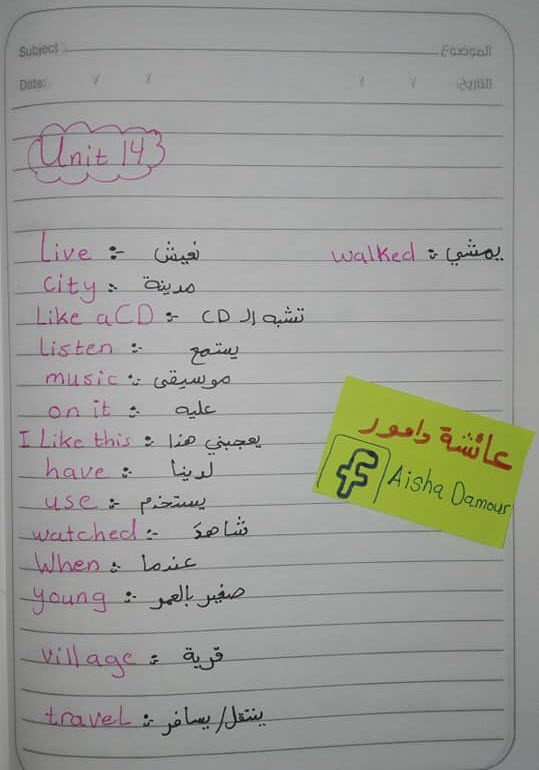 Subject الموضوع
Date: / / / / التاريخ:
Unit 14
Live :- نعيش walked : يمشي
City :- مدينة
Like a CD :- تشبه الـ CD
Listen :- يستمع
music :- موسيقى
on it :- عليه
I Like this : يعجبني هذا
have : لدينا
use : يستخدم
watched :- شاهد
When : عندما
young :- صغير بالعمر
village : قرية
travel :- ينتقل/يسافر
عائشة دامور
f Aisha Damour